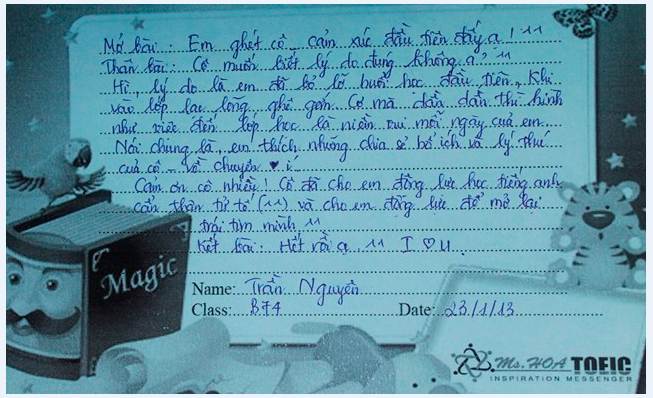 Mở bài: Em ghét cô... cảm xúc đầu tiên đấy ạ! ^^
Thân bài: Cô muốn biết lý do đúng không ạ? ^^
Hì, lý do là em đã bỏ lỡ buổi học đầu tiên. Khi
vào lớp lạc lõng ghê gớm. Cơ mà dần dần thì hình
như việc đến lớp học là niềm vui mỗi ngày của em.
Nói chung là, em thích những chia sẻ bổ ích và lý thú
của cô... về chuyện ♥ í.
Cảm ơn cô nhiều! Cô đã cho em động lực học tiếng anh
cẩn thận tử tế (^^) và cho em động lực để mở lại
trái tim mình ^^
Kết bài: Hết rồi ạ ^^ I ♡ U.
Magic
Name: Trần Nguyên
Class: B74 Date: 23/1/13
Ms. HOA TOEIC
INSPIRATION MESSENGER